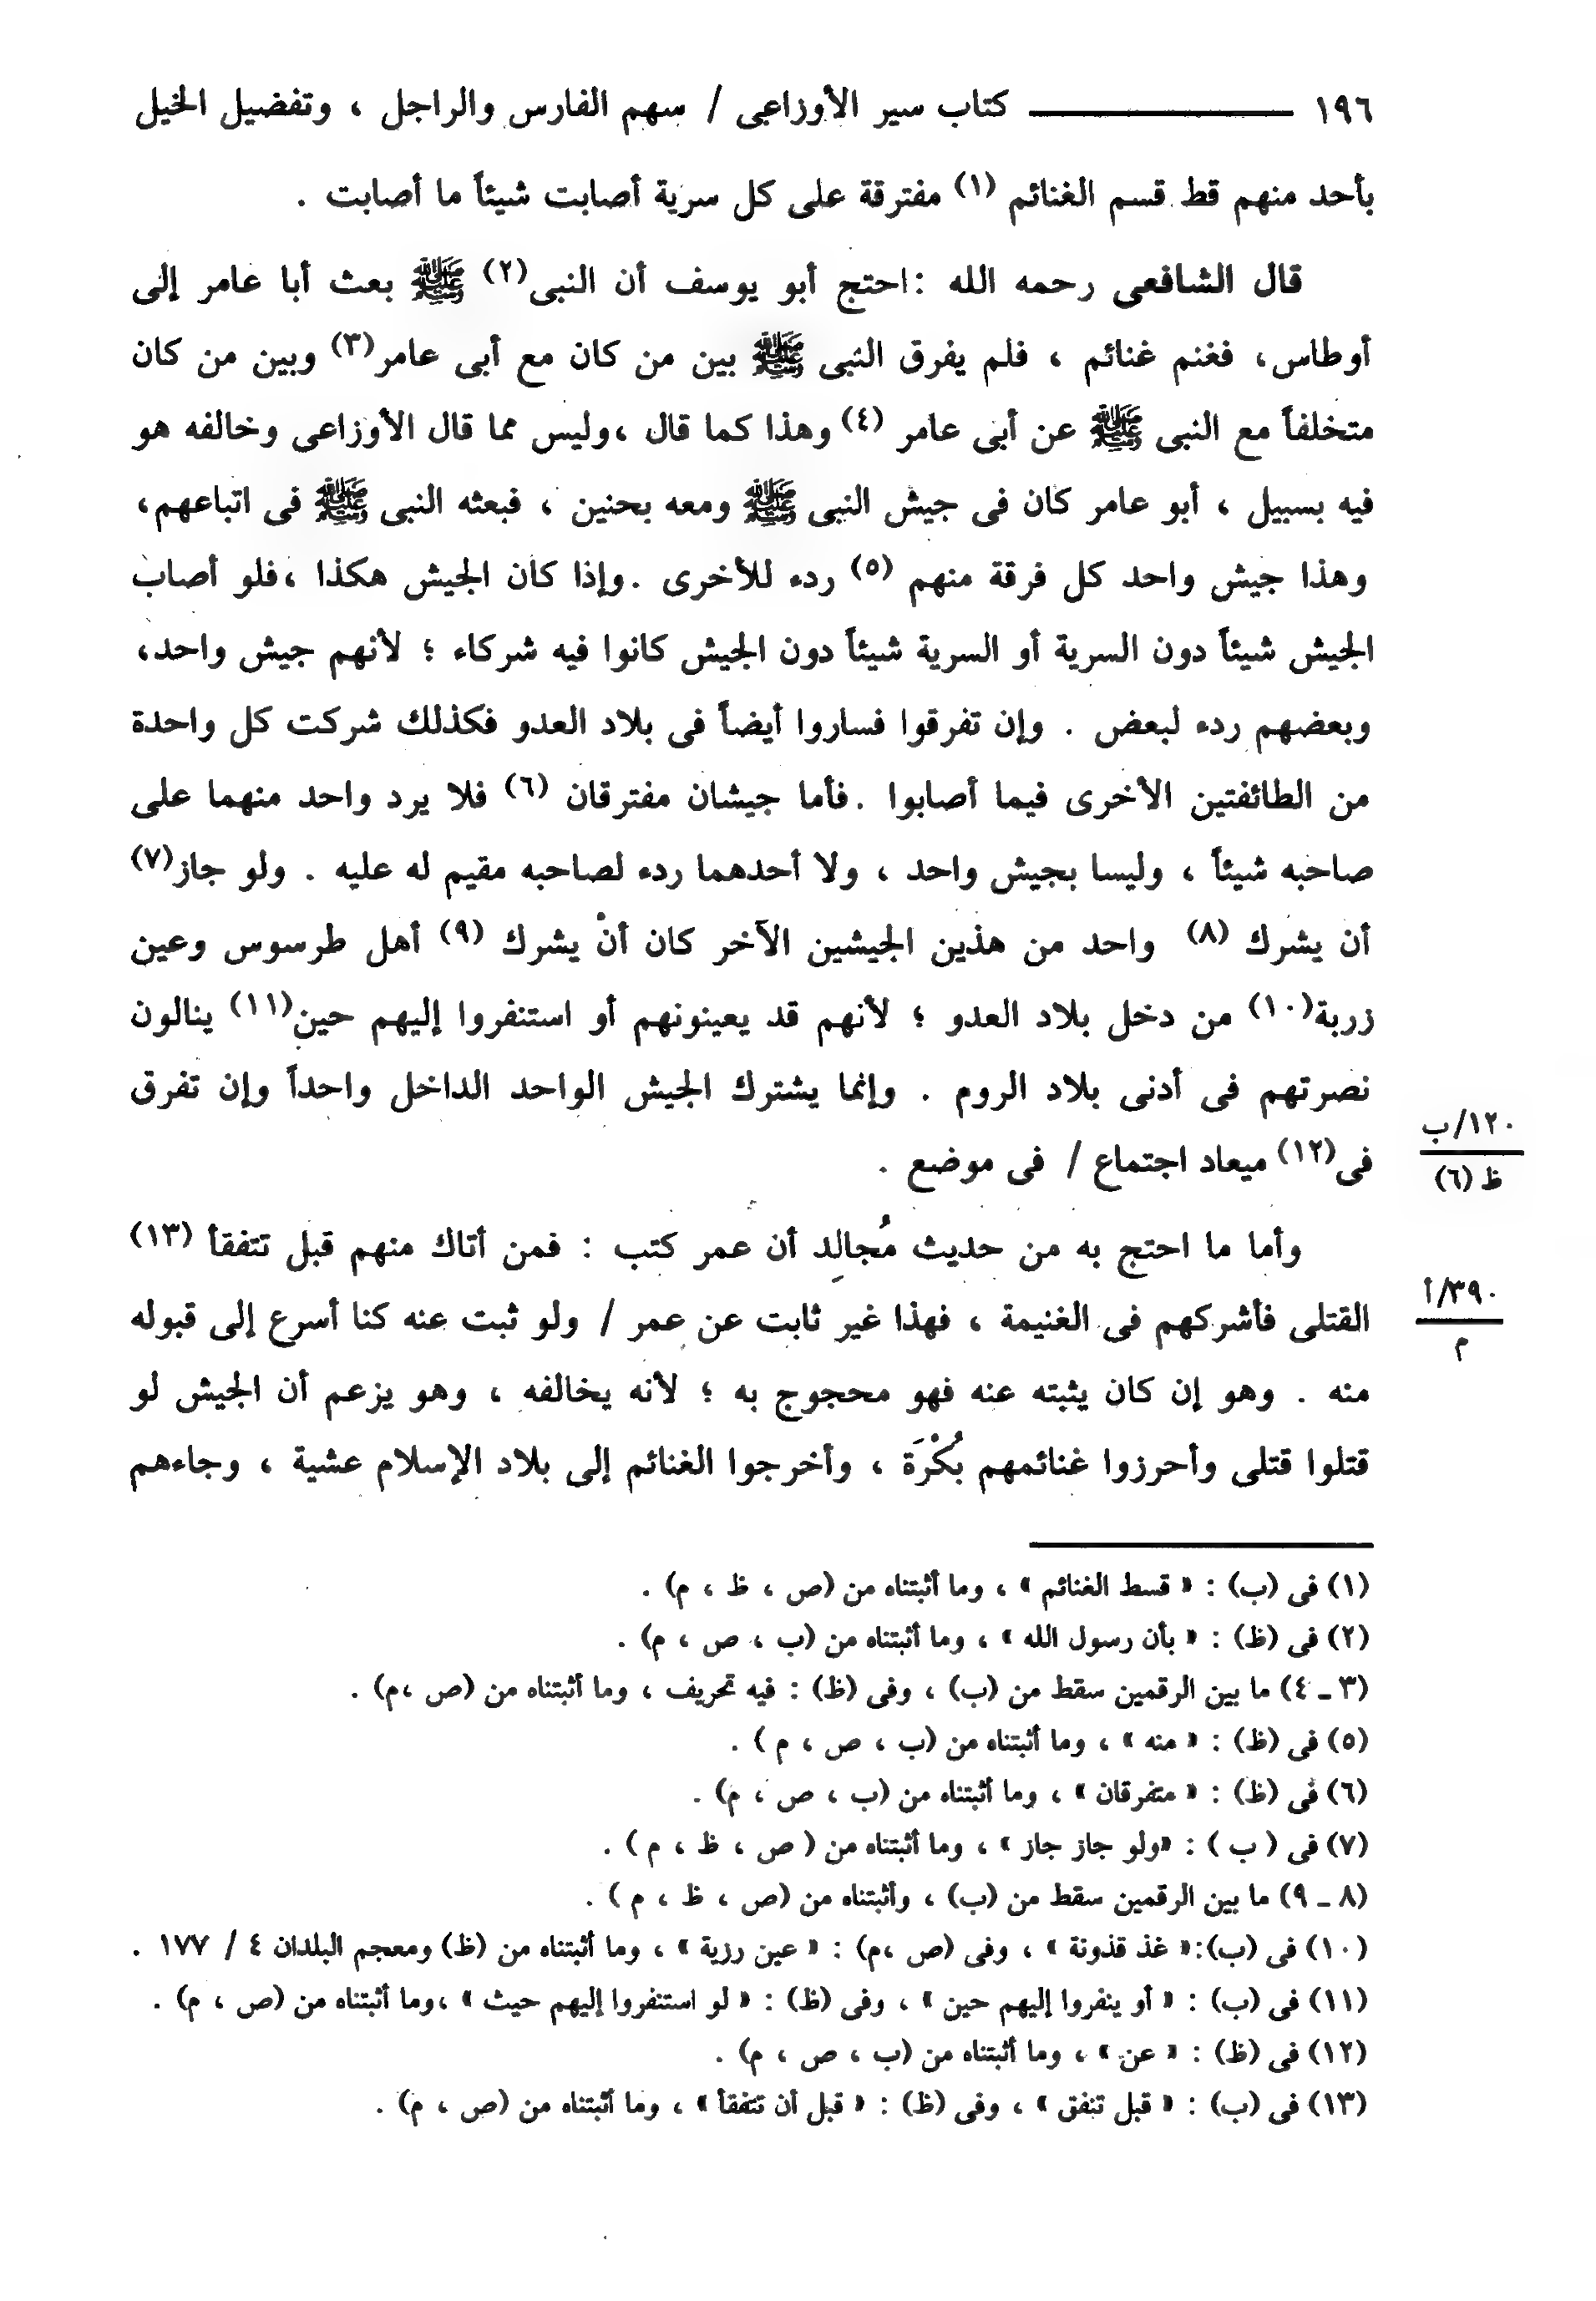 ١٩٦ ــــــــــــــــ كتاب سير الأوزاعى / سهم الفارس والراجل ، وتفضيل الخيل
بأحد منهم قط قسم الغنائم (١) مفترقة على كل سرية أصابت شيئاً ما أصابت .
قال الشافعى رحمه الله : احتج أبو يوسف أن النبى(٢) ﷺ بعث أبا عامر إلى
أوطاس، فغنم غنائم ، فلم يفرق النبى ﷺ بين من كان مع أبى عامر(٣) وبين من كان
متخلفاً مع النبى ﷺ عن أبى عامر (٤) وهذا كما قال ،وليس مما قال الأوزاعى وخالفه هو
فيه بسبيل ، أبو عامر كان فى جيش النبى ﷺ ومعه بحنين ، فبعثه النبى ﷺ فى اتباعهم،
وهذا جيش واحد كل فرقة منهم (٥) ردء للأخرى .وإذا كان الجيش هكذا ،فلو أصاب
الجيش شيئاً دون السرية أو السرية شيئاً دون الجيش كانوا فيه شركاء ؛ لأنهم جيش واحد،
وبعضهم ردء لبعض . وإن تفرقوا فساروا أيضاً فى بلاد العدو فكذلك شركت كل واحدة
من الطائفتين الأخرى فيما أصابوا .فأما جيشان مفترقان (٦) فلا يرد واحد منهما على
صاحبه شيئاً ، وليسا بجيش واحد ، ولا أحدهما ردء لصاحبه مقيم له عليه . ولو جاز(٧)
أن يشرك (٨) واحد من هذين الجيشين الآخر كان أنْ يشرك (٩) أهل طرسوس وعين
زربة(١٠) من دخل بلاد العدو ؛ لأنهم قد يعينونهم أو استنفروا إليهم حين(١١) ينالون
نصرتهم فى أدنى بلاد الروم . وإنما يشترك الجيش الواحد الداخل واحداً وإن تفرق
فى(١٢) ميعاد اجتماع / فى موضع .
١٢٠/ب
ظ (٦)
وأما ما احتج به من حديث مُجالِد أن عمر كتب : فمن أتاك منهم قبل تتفقأ (١٣)
القتلى فأشركهم فى الغنيمة ، فهذا غير ثابت عن عمر / ولو ثبت عنه كنا أسرع إلى قبوله
٣٩٠/أ
م
منه . وهو إن كان يثبته عنه فهو محجوج به ؛ لأنه يخالفه ، وهو يزعم أن الجيش لو
قتلوا قتلى وأحرزوا غنائمهم بُكْرَة ، وأخرجوا الغنائم إلى بلاد الإسلام عشية ، وجاءهم
(١) فى (ب) : « قسط الغنائم » ، وما أثبتناه من (ص ، ظ ، م) .
(٢) فى (ظ) : « بأن رسول الله » ، وما أثبتناه من (ب ، ص ، م) .
(٣ ـ ٤) ما بين الرقمين سقط من (ب) ، وفى (ظ) : فيه تحريف ، وما أثبتناه من (ص ،م) .
(٥) فى (ظ) : « منه » ، وما أثبتناه من (ب ، ص ، م ) .
(٦) فى (ظ) : « متفرقان » ، وما أثبتناه من (ب ، ص ، م) .
(٧) فى ( ب ) : «ولو جاز جاز » ، وما أثبتناه من ( ص ، ظ ، م ) .
(٨ ـ ٩) ما بين الرقمين سقط من (ب) ، وأثبتناه من (ص ، ظ ، م ) .
(١٠) فى (ب):« غذ قذونة » ، وفى (ص ،م) : « عين رزية » ، وما أثبتناه من (ظ) ومعجم البلدان ٤ / ١٧٧ .
(١١) فى (ب) : « أو ينفروا إليهم حين » ، وفى (ظ) : « لو استنفروا إليهم حيث » ،وما أثبتناه من (ص ، م) .
(١٢) فى (ظ) : « عن » ، وما أثبتناه من (ب ، ص ، م) .
(١٣) فى (ب) : « قبل تنفق » ، وفى (ظ) : « قبل أن تتفقأ » ، وما أثبتناه من (ص ، م) .